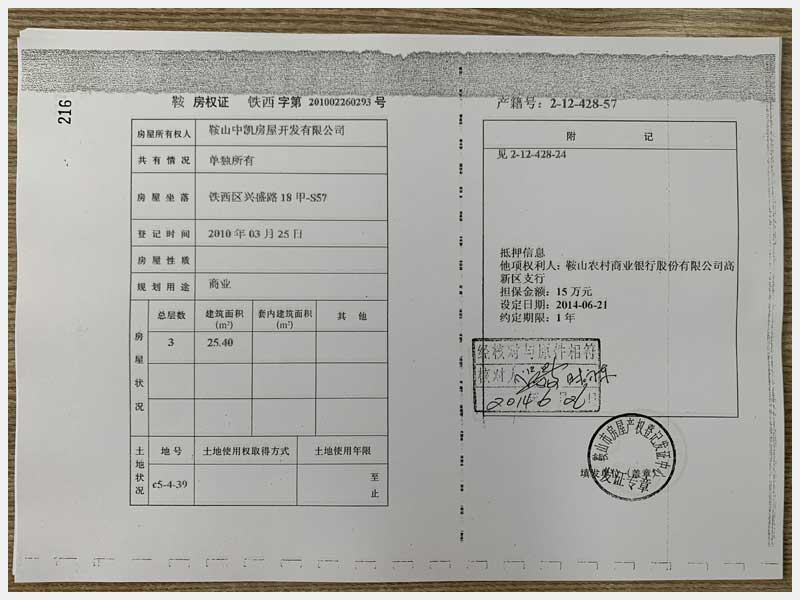 216
鞍 房权证 铁西 字第 201002260293 号
房屋所有权人 鞍山中凯房屋开发有限公司
共有情况 单独所有
房屋坐落 铁西区兴盛路 18 甲-S57
登记时间 2010 年 03 月 25 日
房屋性质
规划用途 商业
房屋状况
总层数 建筑面积(m²) 套内建筑面积(m²) 其他
3 25.40
土地状况
地号 土地使用权取得方式 土地使用年限
c5-4-39 至
止
产籍号：2-12-428-57
附 记
见 2-12-428-24
抵押信息
他项权利人：鞍山农村商业银行股份有限公司高
新区支行
担保金额：15 万元
设定日期：2014-06-21
约定期限：1 年
经核对与原件相符
核对人
2014 6
鞍山市房屋产权登记发证中心
填发单位（盖章）